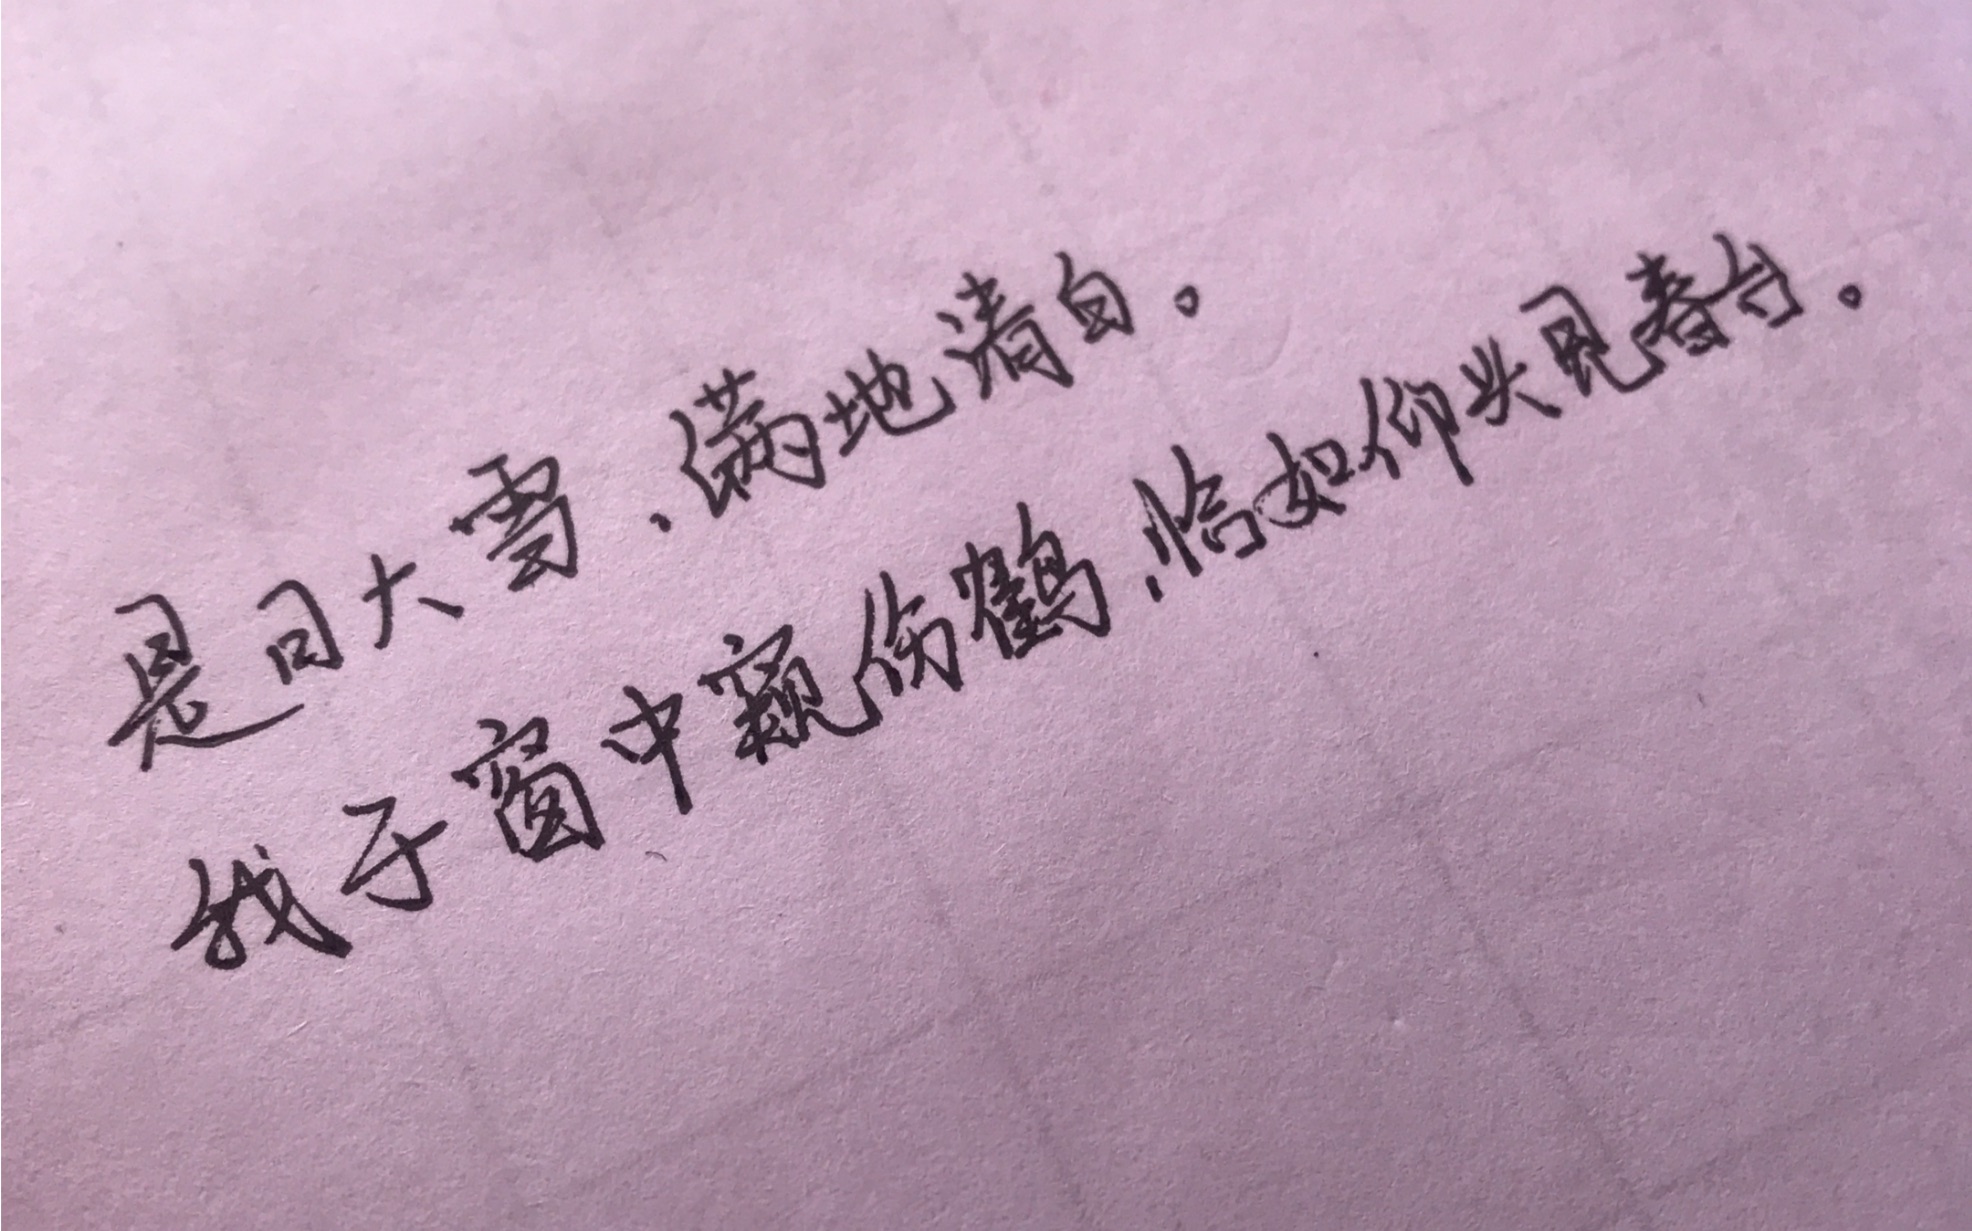 是日大雪，满地清白。
我于窗中窥伤鹤，恰如仰头见春台。